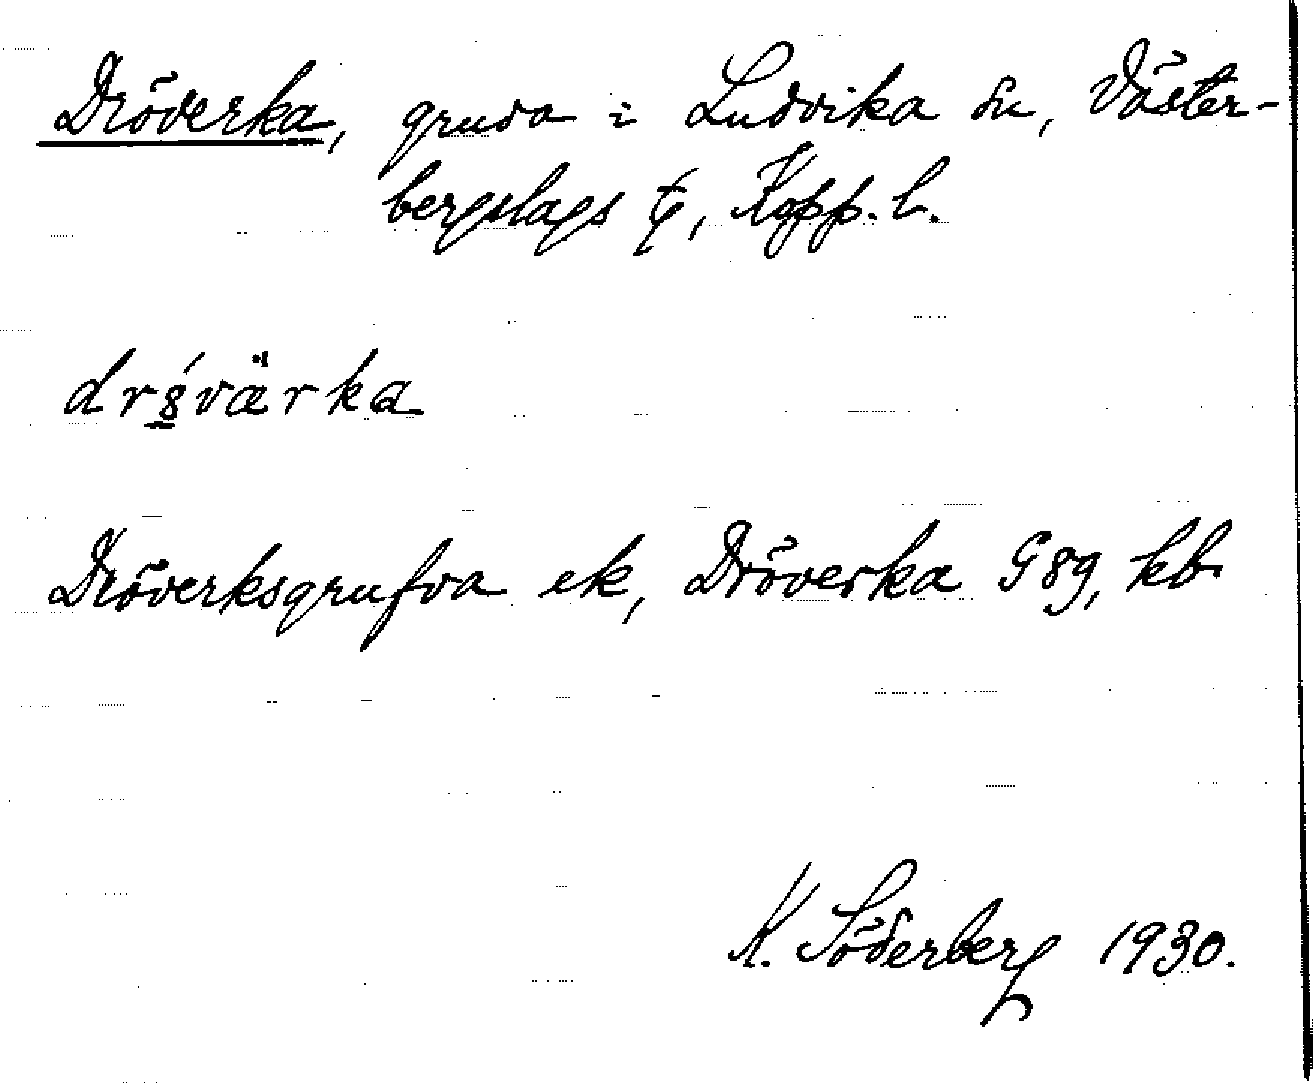 Dröverka, gruva i Ludvika sn, Väster-
bergslags tg, Kopp. l.
Dröverksgrufva ek, Dröverka G 89, kb
K. Söderberg 1930.